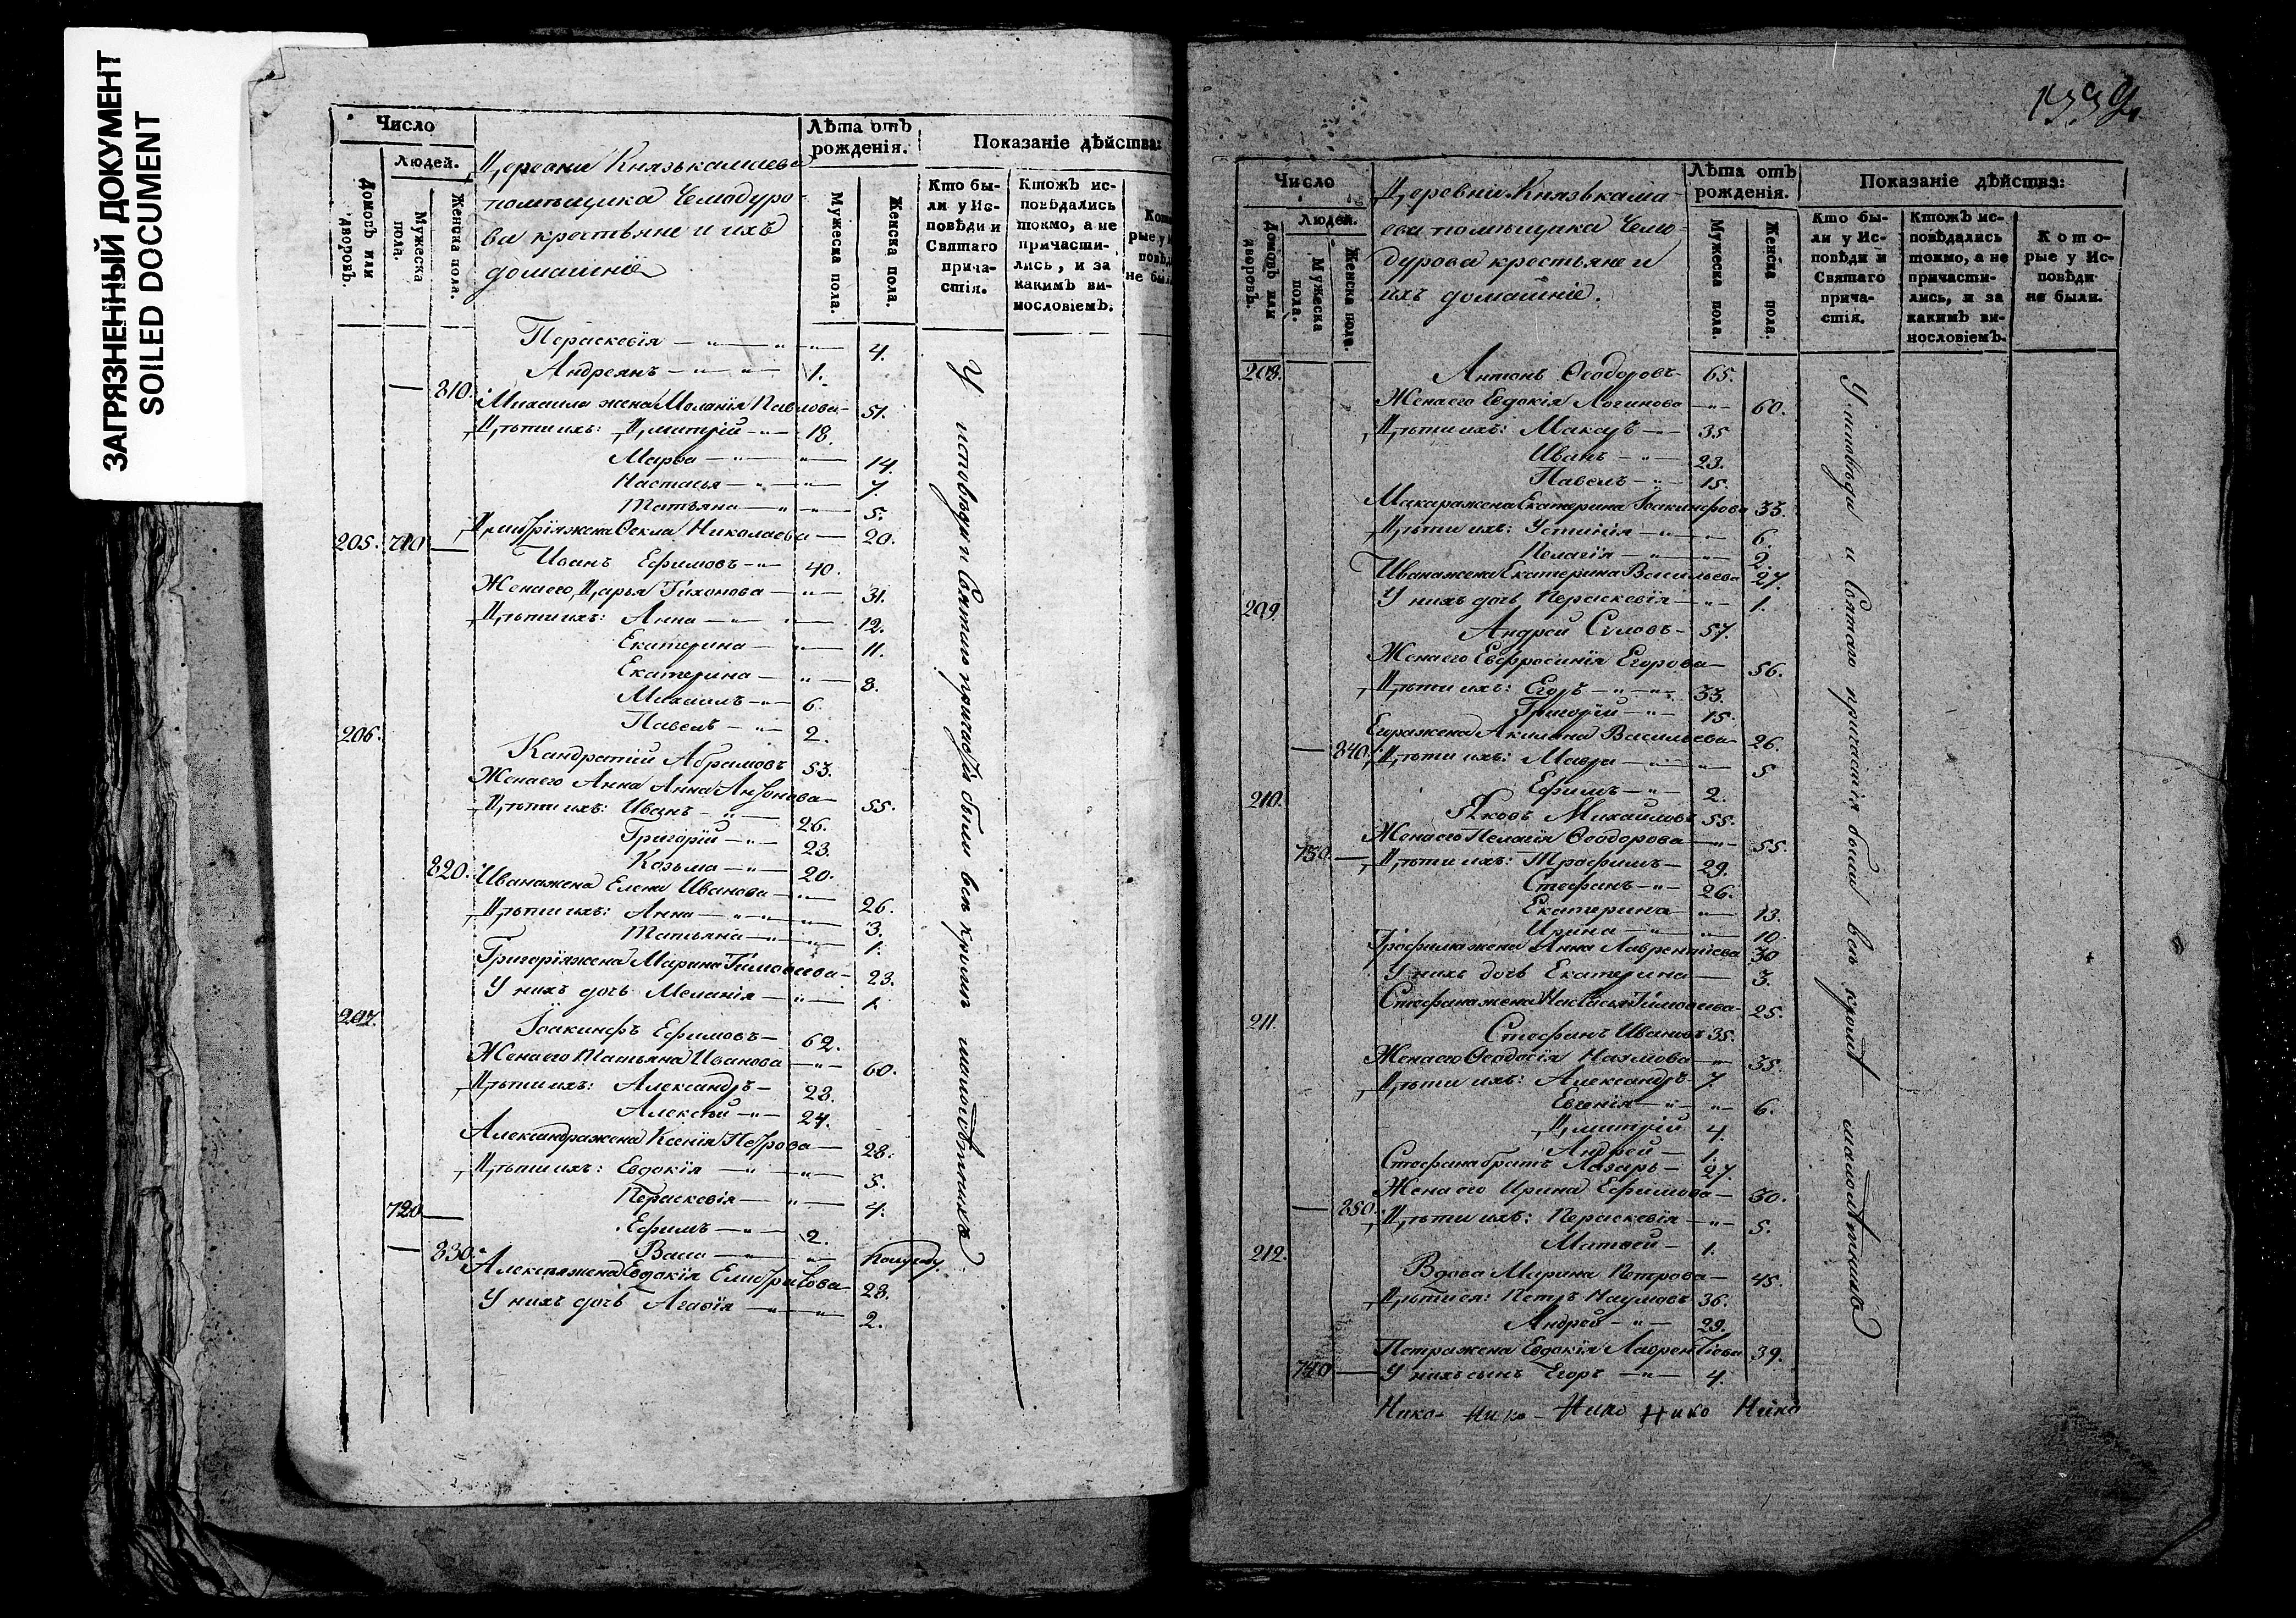 ЗАГРЯЗНЕННЫЙ ДОКУМЕНТ
SOILED DOCUMENT
Число
Людей.
Домовъ или дворовъ.
Мужеска пола.
Женска пола.
Деревни Князькамаева
помѣщика Чемодуро-
ва крестьяне и ихъ
домашніе
Лѣта отъ рожденія.
Мужеска пола.
Женска пола.
Показаніе дѣйства:
Кто бы-
ли у Ис-
повѣди и
Святаго
прича-
стія.
Ктожъ ис-
повѣдались
токмо, а не
причасти-
лись, и за
какимъ ви-
нословіемъ.
Перасковія 4.
Андреянъ 1.
810. Михаила жена Меланія Павлова 51.
Дѣти ихъ: Дмитрій 18.
Марѳа 14.
Настасья 7.
Татьяна 5.
Дмитрія жена Ѳекла Николаева 20.
205. 710 Иванъ Ефимовъ 40.
Жена его Дарья Тихонова 31.
Дѣти ихъ: Анна 12.
Екатерина 11.
Екатерина 8.
Михаилъ 6.
Павелъ 2.
206. Кандратій Абрамовъ 53.
Жена его Анна Анна Антонова 55.
Дѣти ихъ: Иванъ 26.
Григорій 23.
Козьма 20.
820. Ивана жена Елена Иванова 26.
Дѣти ихъ: Анна 3.
Татьяна 1.
Григорія жена Марина Тимоѳеева 23.
У нихъ дочь Меланія 1.
207. Іоакинфъ Ефимовъ 62.
Жена его Татьяна Иванова 60.
Дѣти ихъ: Александръ 28.
Алексѣй 24.
Александра жена Ксенія Петрова 28.
Дѣти ихъ: Евдокія 5.
Перасковія 4.
720 Ефимъ 2.
830. Васса полугоду.
Алексѣя жена Евдокія 28.
У нихъ дочь Агаѳія 2.
У исповѣди и Святаго причастія были всѣ кромѣ малолѣтнихъ
1339.
Число
Людей.
Домовъ или дворовъ.
Мужеска пола.
Женска пола.
Деревни Князькама-
ева помѣщика Чемо-
дурова крестьяне и
ихъ домашніе.
Лѣта отъ рожденія.
Мужеска пола.
Женска пола.
Показаніе дѣйства:
Кто бы-
ли у Ис-
повѣди и
Святаго
прича-
стія.
Ктожъ ис-
повѣдались
токмо, а не
причасти-
лись, и за
какимъ ви-
нословіемъ.
Кото-
рые у Ис-
повѣди
не были.
208. Антонъ Ѳеодоровъ 65.
Жена его Евдокія Логинова 60.
Дѣти ихъ: Макаръ 35
Иванъ 23.
Павелъ 15.
Макара жена Екатерина Іоакинфова 33.
Дѣти ихъ: Устинія 6.
Пелагія 2.
Ивана жена Екатерина Васильева 27
У нихъ дочь Перасковія 1.
209. Андрей Силовъ 57.
Жена его Евфросинія Егорова 56.
Дѣти ихъ: Егоръ 33.
Григорій 15.
Егора жена Акилина Васильева 26.
840. Дѣти ихъ: Мавра 5
Ефимъ 2.
210. Яковъ Михаиловъ 55.
Жена его Пелагія Ѳеодорова 55.
730. Дѣти ихъ: Трофимъ 29.
Стефанъ 26.
Екатерина 13.
Ирина 10
Трофима жена Анна Лаврентіева 30
У нихъ дочь Екатерина 3.
Стефана жена Настасья Тимоѳеева 25.
211. Стефанъ Ивановъ 35.
Жена его Ѳеодосія Наумова 35.
Дѣти ихъ: Александръ 7
Евгенія 6.
Дмитрій 4.
Андрей 1.
Стефана братъ Лазарь 27.
Жена его Ирина Ефимова 30.
850. Дѣти ихъ: Перасковія 5.
Матвей 1.
212. Вдова Марина Петрова 45.
Дѣти ея: Петръ Наумовъ 36.
Андрей 29.
Петра жена Евдокія Лаврентіева 39.
740 У нихъ сынъ Егоръ 4.
У исповѣди и Святаго причастія были всѣ кромѣ малолѣтнихъ
Нико- Нико- Нико Нико Нико